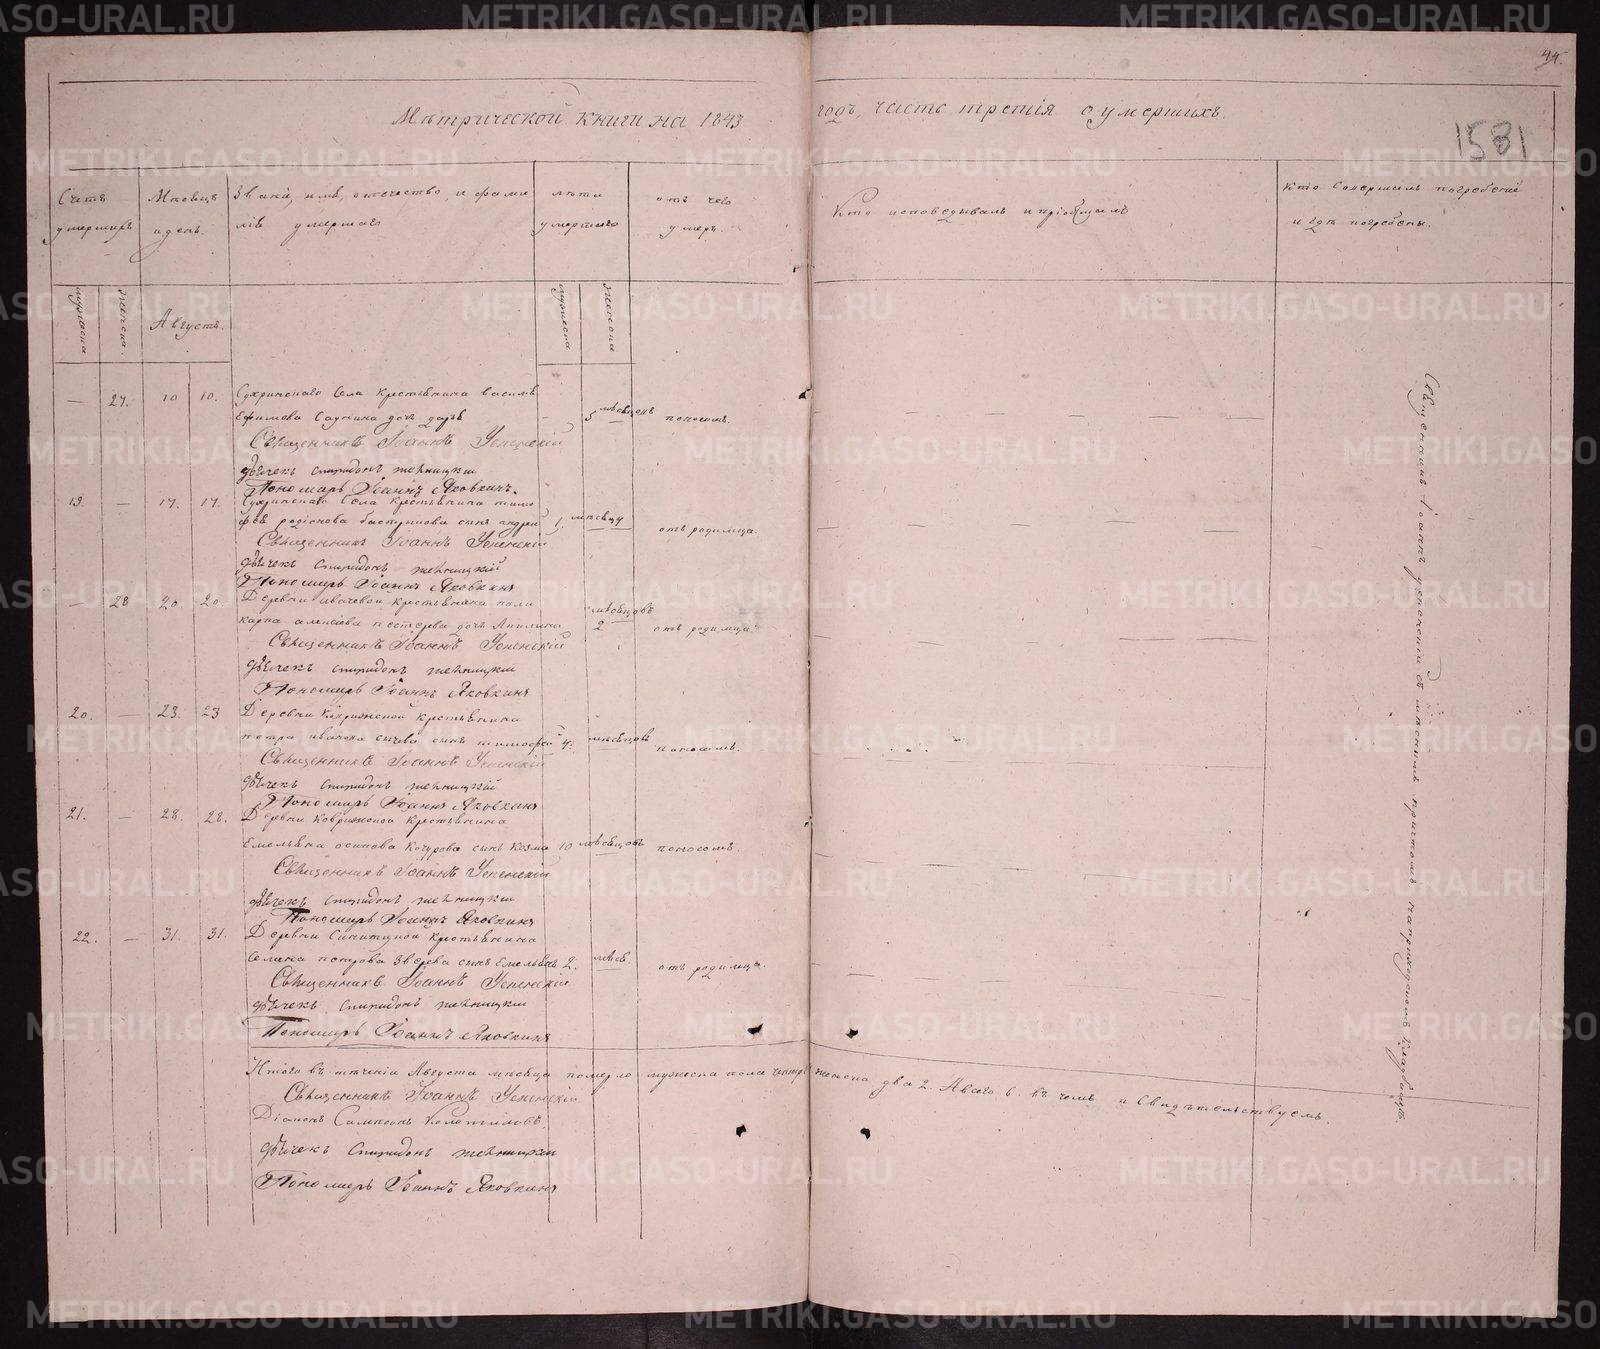 44.
Мѣтрической книги на 1843 годъ, часть третія о умершихъ.
1581
Счетъ умершихъ
Мѣсяцъ и день.
Званіе, имя, отечество, и фамилія умершаго
лѣты умершаго
отъ чего умеръ.
Кто исповедывалъ и пріобщалъ
Кто Совершалъ погребеніе и гдѣ погребены.
мужеска
женска.
Августъ.
мужеска
женска
— 27. 10 10. Сухринскаго Села крестьянина василья
Ефимова Саунина дочь дарья — 5 мѣсяцовъ поносомъ.
Священникъ Іоаннъ Успенскій
дьячекъ спиридонъ
Пономарь Іоаннъ Яковкинъ.
19. — 17. 17. Сухринскаго Села крестьянина тимо
фея родіонова сынъ андрей 1. мѣсяцу отъ родимца.
Священникъ Іоаннъ Успенскій
дьячекъ спиридонъ
Пономарь Іоаннъ Яковкинъ
— 28 20. 20. Деревни крестьянина поли
карпа алексѣева пестерева дочь 2 мѣсяцовъ отъ родимца.
Священникъ Іоаннъ Успенскій
дьячекъ спиридонъ
Пономарь Іоаннъ Яковкинъ
20. — 23. 23 Деревни крестьянина
петра иванова сычева сынъ тимофей 4. мѣсяцовъ поносомъ.
Священникъ Іоаннъ Успенскій
дьячекъ спиридонъ
Пономарь Іоаннъ Яковкинъ
21. — 28. 28. Деревни Ковриженой крестьянина
Емельяна осипова Кочурова сынъ козма 10 мѣсяцовъ поносомъ.
Священникъ Іоаннъ Успенскій
дьячекъ спиридонъ
Пономарь Іоаннъ Яковкинъ
22. — 31. 31. Деревни крестьянина
Семена петрова Зверева сынъ Емельянъ 2. мѣсяц. отъ родимца.
Священникъ Іоаннъ Успенскій
дьячекъ спиридонъ
Пономарь Іоаннъ Яковкинъ
Итого въ теченіи Августа мѣсяца померло мужеска пола четыре женска два 2. А всего 6. въ чемъ и Свидѣтельствуемъ.
Священникъ Іоаннъ Успенскій
Діаконъ Сампсонъ
дьячекъ спиридонъ
Пономарь Іоаннъ Яковкинъ
Священникъ Іоаннъ успенскій съ причтомъ на приходскомъ кладбищѣ.
METRIKI.GASO-URAL.RU